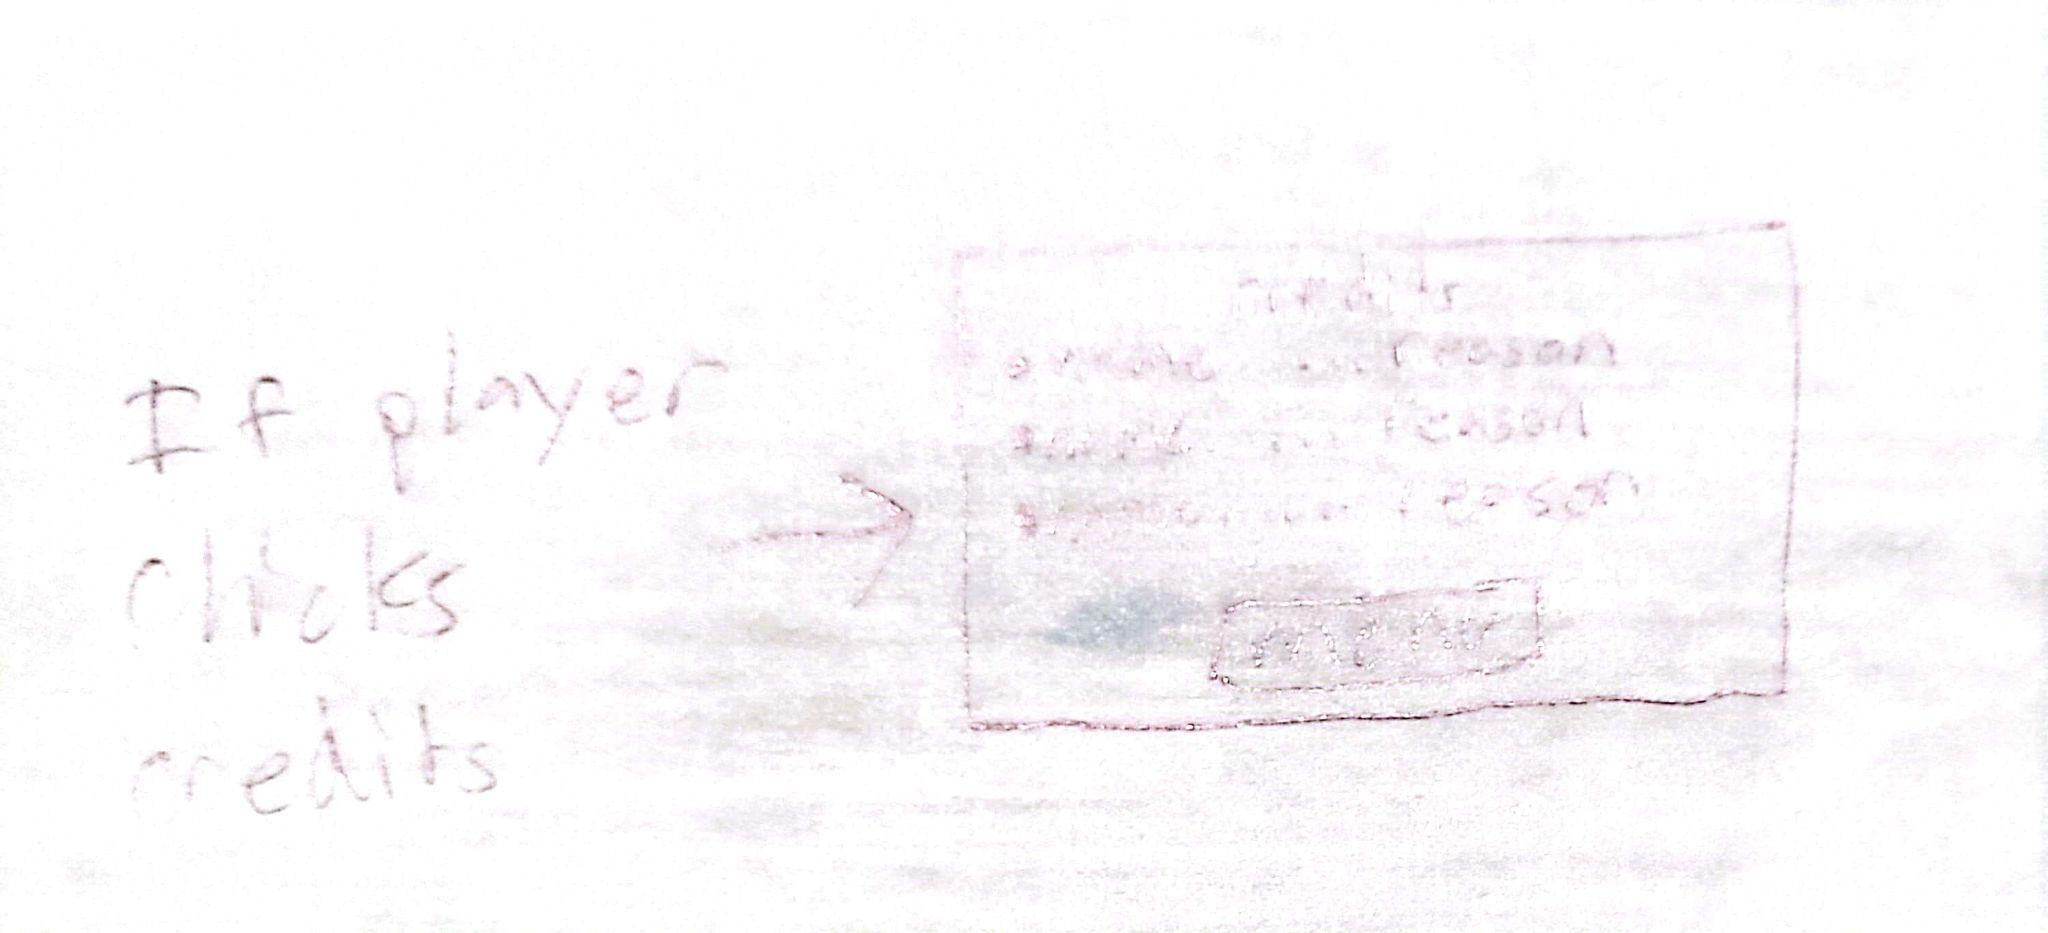 If player
clicks
credits
credits
name ... reason
reason
reason
menu